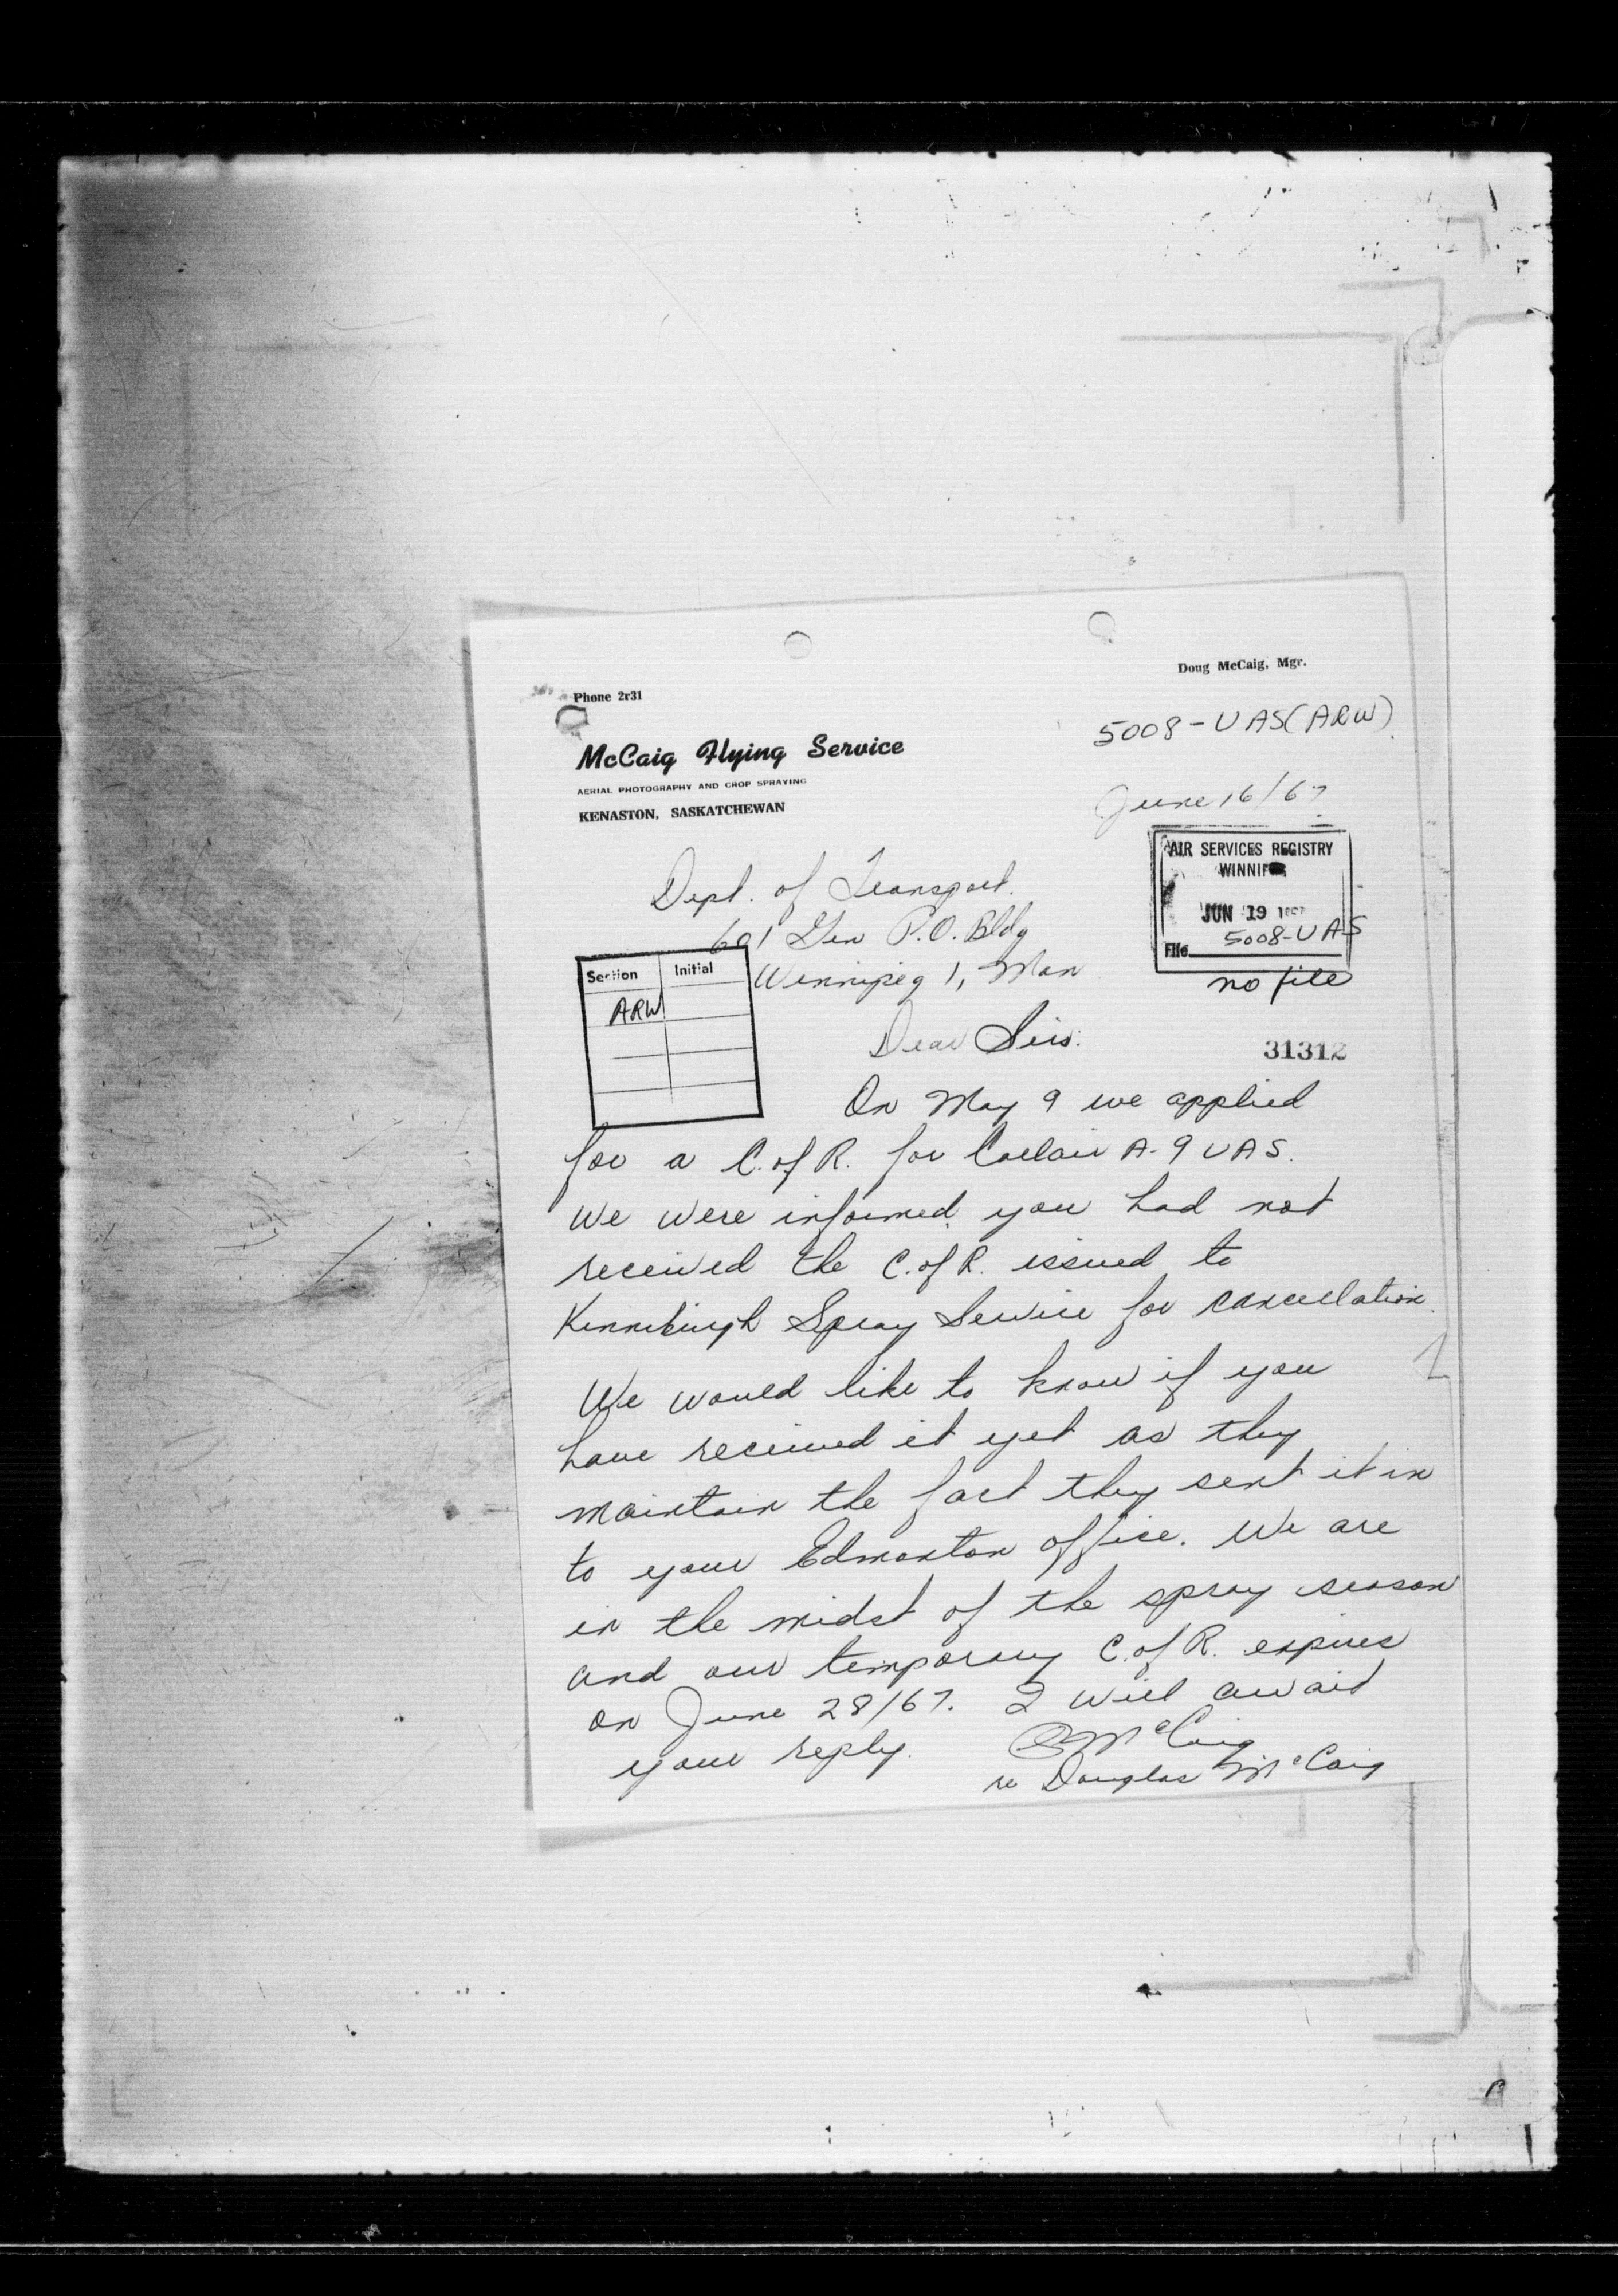 Doug McCaig, Mgr.
Phone 2r31
5008-UAS(ARW)
McCaig Flying Service
AERIAL PHOTOGRAPHY AND CROP SPRAYING
KENASTON, SASKATCHEWAN
June 16/67
AIR SERVICES REGISTRY
WINNIPEG
JUN 19 1967
File 5008-UAS
no file
Dept. of Transport.
601 Gen P.O. Bldg
Winnipeg 1, Man
Section Initial
ARW
Dear Sirs:
31312
On May 9 we applied
for a C. of R. for Callair A-9 UAS.
We were informed you had not
received the C. of R. issued to
Kinniburgh Spray Service for cancellation.
We would like to know if you
have received it yet as they
maintain the fact they sent it in
to your Edmonton office. We are
in the midst of the spray season
and our temporary C. of R. expires
on June 28/67. I will await
your reply.
McCaig
Douglas McCaig